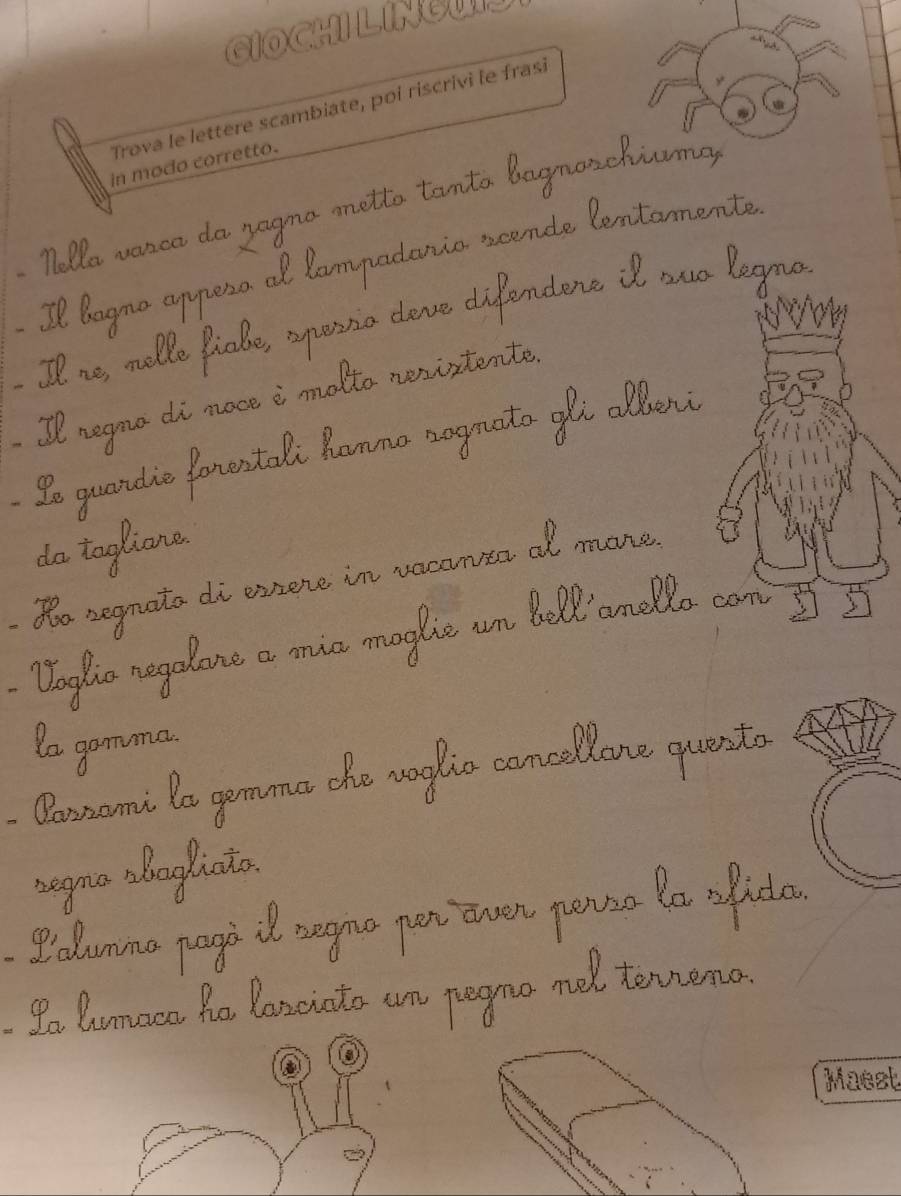 GIOCHI LINGUIS
Trova le lettere scambiate, poi riscrivi le frasi
in modo corretto.
- Nella vasca da ragno metto tanto bagnoschiuma,
- Il bagno appeso al lampadario scende lentamente.
- Il re, nelle fiabe, spesso deve difendere il suo legno.
- Il regno di noce è molto resistente.
- Le guardie forestali hanno sognato gli alberi
da tagliare.
- Ho segnato di essere in vacanza al mare.
- Voglio regalare a mia moglie un bell'anello con
la gomma.
- Passami la gemma che voglio cancellare questo
segno sbagliato.
- L'alunno pagò il segno per aver perso la sfida.
- La lumaca ha lasciato un pegno nel terreno.
Maest